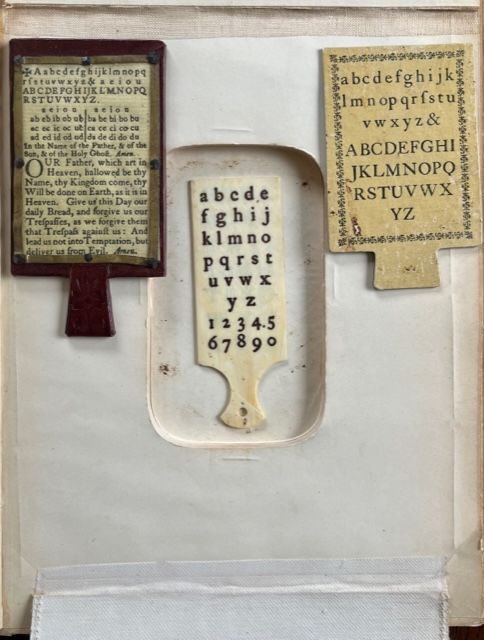 ✠Aabcdefghijklmnopq
rſstuvwxyz& a e i o u
ABCDEFGHIJKLMNOPQ
RSTUVWXYZ.
a e i o u a e i o u
ab eb ib ob ub ba be bi bo bu
ac ec ic oc uc ca ce ci co cu
ad ed id od ud da de di do du
In the Name of the Father, & of the
Son, & of the Holy Ghoſt. Amen.
OUR Father, which art in
Heaven, hallowed be thy
Name, thy Kingdom come, thy
Will be done on Earth, as it is in
Heaven. Give us this Day our
daily Bread, and forgive us our
Treſpaſſes, as we forgive them
that Treſpaſs againſt us: And
lead us not into Temptation, but
deliver us from Evil. Amen.
a b c d e
f g h i j
k l m n o
p q r s t
u v w x
y z
1 2 3 4 5
6 7 8 9 0
a b c d e f g h i j k
l m n o p q r s t u
v w x y z &
ABCDEFGHI
JKLMNOPQ
RSTUVWX
YZ